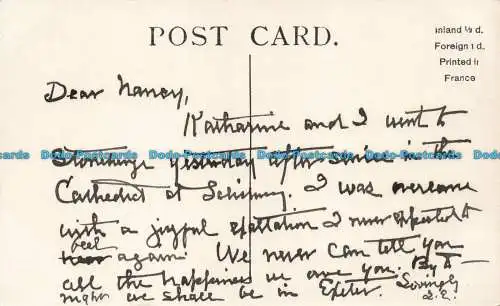 POST CARD.
Inland ½ d.
Foreign 1 d.
Printed in
France
Dear Nancy,
Katharine and I went to
Stonehenge yesterday after service in the
Cathedral at Salisbury. I was overcome
with a joyful exaltation I never expected to
feel again. We never can tell you
all the happiness we owe you. By to-
night we shall be in Exeter. Lovingly
Dodo-Postcards Dodo-Postcards Dodo-Postcards